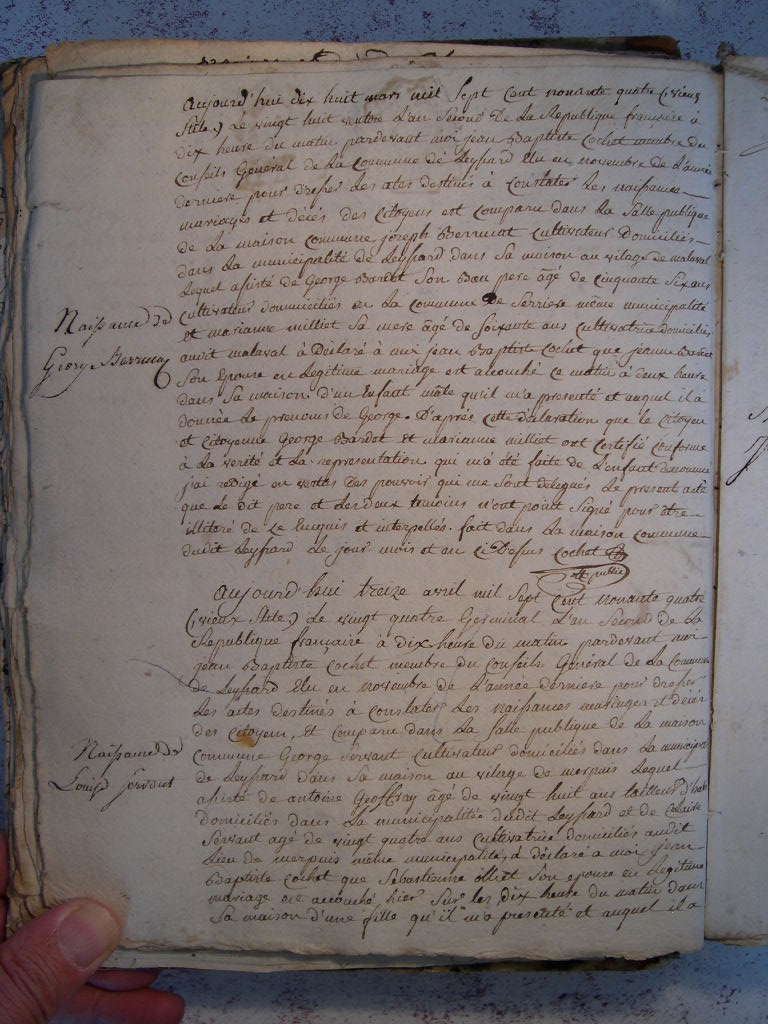 aujourd'hui dix huit mars mil Sept Cent nonante quatre (vieux
Stile,) Le vingt huit ventose L'an Second De La Republique française à
Dix heure du matin pardevant moi jean Baptiste Cochet membre du
Conseils Géneral de La Commune de Leyssard Elu en novembre de L'année
derniere pour dresser Les actes destinés à Constater Les naissances
mariages et décés des Citoyens est Comparu dans La Salle publique
de La maison Commune, joseph Berruciat Cultivateur Domiciliés
dans La municipalité de Leyssard dans Sa maison au vilage de malaval
Lequel assisté de George Bardet Son Beau pere âgé de Cinquante Six ans
Cultivateur domiciliés en La Commune de Serriere même municipalité
et marianne milliet Sa mere âgé de Soixante ans Cultivatrice domiciliés
audit malaval à Déclaré à moi jean Baptiste Cochet que jeanne Bardet
Son Epouse en Legitime mariage est acouché ce matin à deux heure
dans Sa maison d'un Enfant mâle qu'il m'a presenté et auquel il à
donnée Le prenoms de George. D'après cette déclaration que le Citoyen
et Citoyenne George Bardet et marianne milliet ont Certifié Conforme
à La verité et La representation qui m'a été faite de L'enfant denommé
j'ai redigé en vertus Des pouvoir qui me Sont delegués Le present acte
que Le dit pere et Les deux temoins n'ont point Signé pour être
illitéré de Ce Enquis et interpellés. fait dans La maison Commune
dudit Leyssard Le jour mois et an Ci Dessus Cochet
off public
Naissance de
George
aujourd'hui treize avril mil Sept Cent nonante quatre
(vieux Stile,) Le vingt quatre Germinial L'an Second de La
Republique française à Dix heure du matin pardevant moi
jean Baptiste Cochet membre du Conseils Géneral de La Commune
de Leyssard Elu en novembre de L'année derniere pour dresser
Les actes destinés à Constater Les naissances mariages et décés
des Citoyens, Et Comparu dans La Salle publique de La maison
Commune George Servant Cultivateur domiciliés dans La municipa
de Leyssard dans Sa maison au vilage de merpuis Lequel
assisté de antoine Geoffray âgé de vingt huit ans tailleur d'hab
domiciliés dans La municipalité dudit Leyssard et de Claire
Servant agé de vingt quatre ans Cultivatrice domiciliés audit
Lieu de merpuis même municipalité, à déclaré a moi jean
Baptiste Cochet que Sebastienne Son epouse en Legitime
mariage est acouché hier Sur Les Dix heure du matin dans
Sa maison d'une fille qu'il m'a presenté et auquel il a
Naissance de
Louise Servant